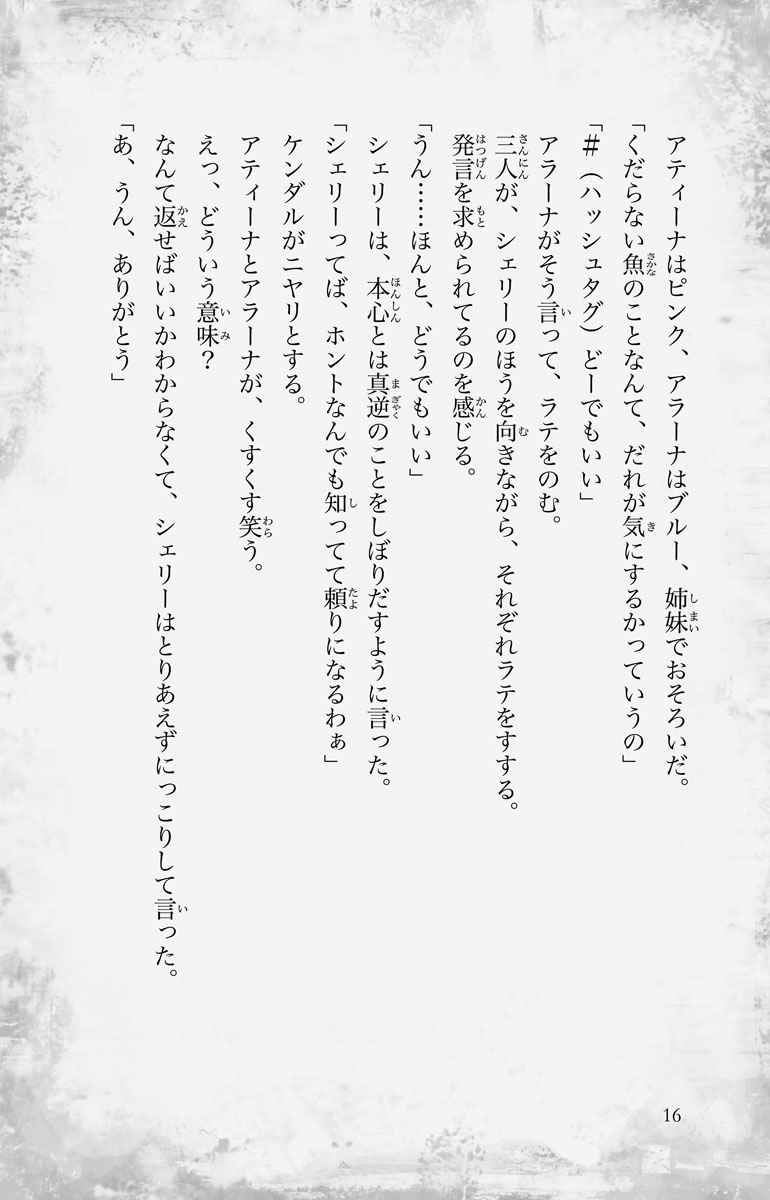 アティーナはピンク、アラーナはブルー、姉妹でおそろいだ。
「くだらない魚のことなんて、だれが気にするかっていうの」
「#（ハッシュタグ）どーでもいい」
アラーナがそう言って、ラテをのむ。
三人が、シェリーのほうを向きながら、それぞれラテをすする。
発言を求められてるのを感じる。
「うん……ほんと、どうでもいい」
シェリーは、本心とは真逆のことをしぼりだすように言った。
「シェリーってば、ホントなんでも知ってて頼りになるわぁ」
ケンダルがニヤリとする。
アティーナとアラーナが、くすくす笑う。
えっ、どういう意味？
なんて返せばいいかわからなくて、シェリーはとりあえずにっこりして言った。
「あ、うん、ありがとう」
16